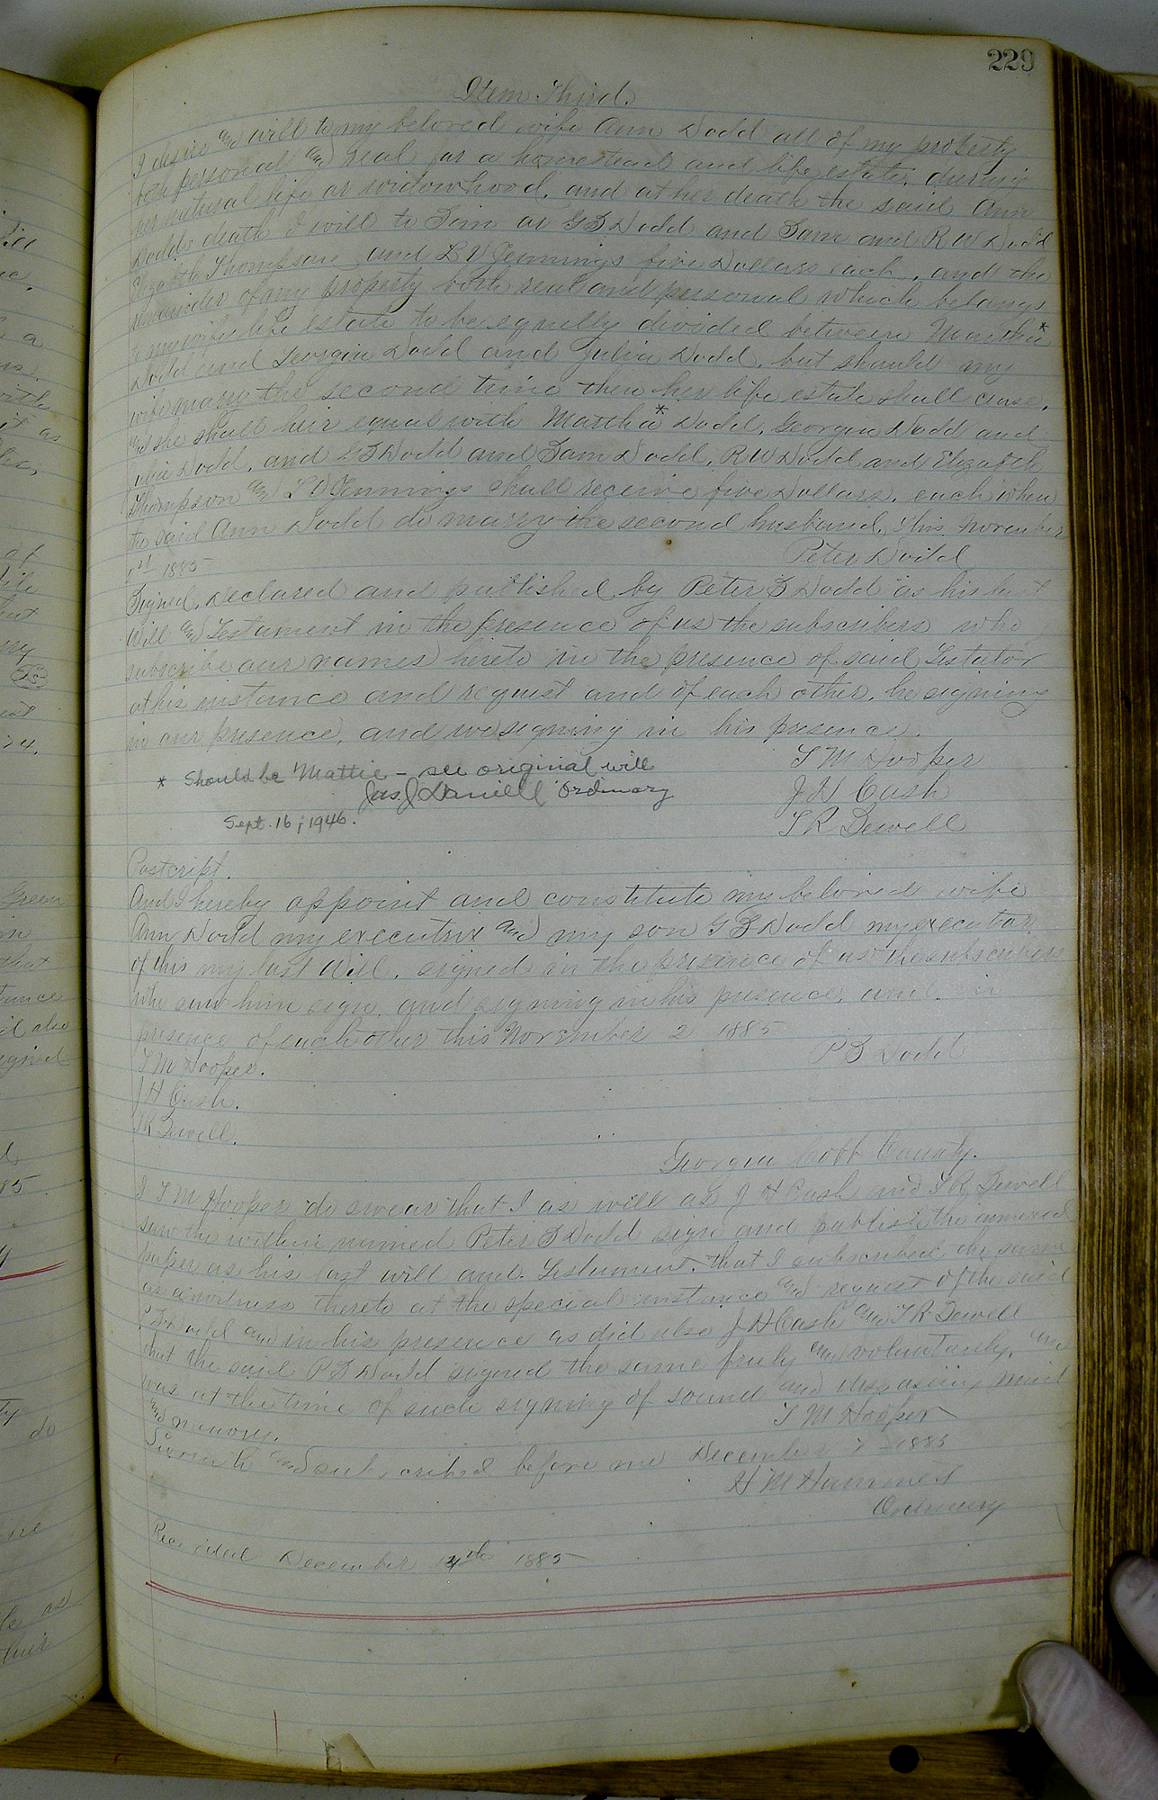 229
Item Third.
I desire and will to my beloved wife Ann Dodd all of my property
both personal and Real for a homestead and life estate, during
her natural life or widowhood, and at her death the said Ann
Dodds death I will to Tim or G B Dodd and Sam and R W Dodd
Elizabeth Thompson and L V Jennings five Dollars each, and the
remainder of my property both real and personal which belongs
to my wifes life estate to be equally divided between Martha*
Dodd and Georgia Dodd and Julia Dodd, but should my
wife marry the second time then her life estate shall cease,
and she shall heir equal with Martha* Dodd, Georgia Dodd and
Julia Dodd, and G B Dodd and Sam Dodd, R W Dodd and Elizabeth
Thompson and L V Jennings shall receive five Dollars, each when
the said Ann Dodd do marry the second husband, This November
1885
Peter Dodd
Signed, Declared and published by Peter B Dodd as his last
Will and Testament in the presence of us the subscribers who
subscribe our names hereto in the presence of said Testator
at his instance and request and of each other, he signing
in our presence, and we signing in his presence.
T M Hooper
* Should be Mattie - see original will
Jas. J Daniell Ordinary
J H Cash
Sept. 16, 1946.
T R Sewell
Postcript.
And I hereby appoint and constitute my beloved wife
Ann Dodd my executrix and my son G B Dodd my executor
of this my last Will, signed in the presence of us the subscribers
who saw him sign, and signing in his presence, and in
presence of each other this November 2 1885
P B Dodd
T M Hooper.
J H Cash.
T R Sewell.
Georgia Cobb County.
I T M Hooper do swear that I as well as J H Cash and T R Sewell
saw the within named Peter B Dodd sign and publish the annexed
paper as his last will and Testament, that I subscribed the same
as a witness thereto at the special instance and request of the said
P B Dodd and in his presence as did also J H Cash and T R Sewell
that the said P B Dodd signed the same freely and voluntarily, and
was at the time of such signing of sound and disposing mind
and memory.
T M Hooper
Sworn to and subscribed before me December 7 1885
H M Hammett
Ordinary
Recorded December 14th 1885